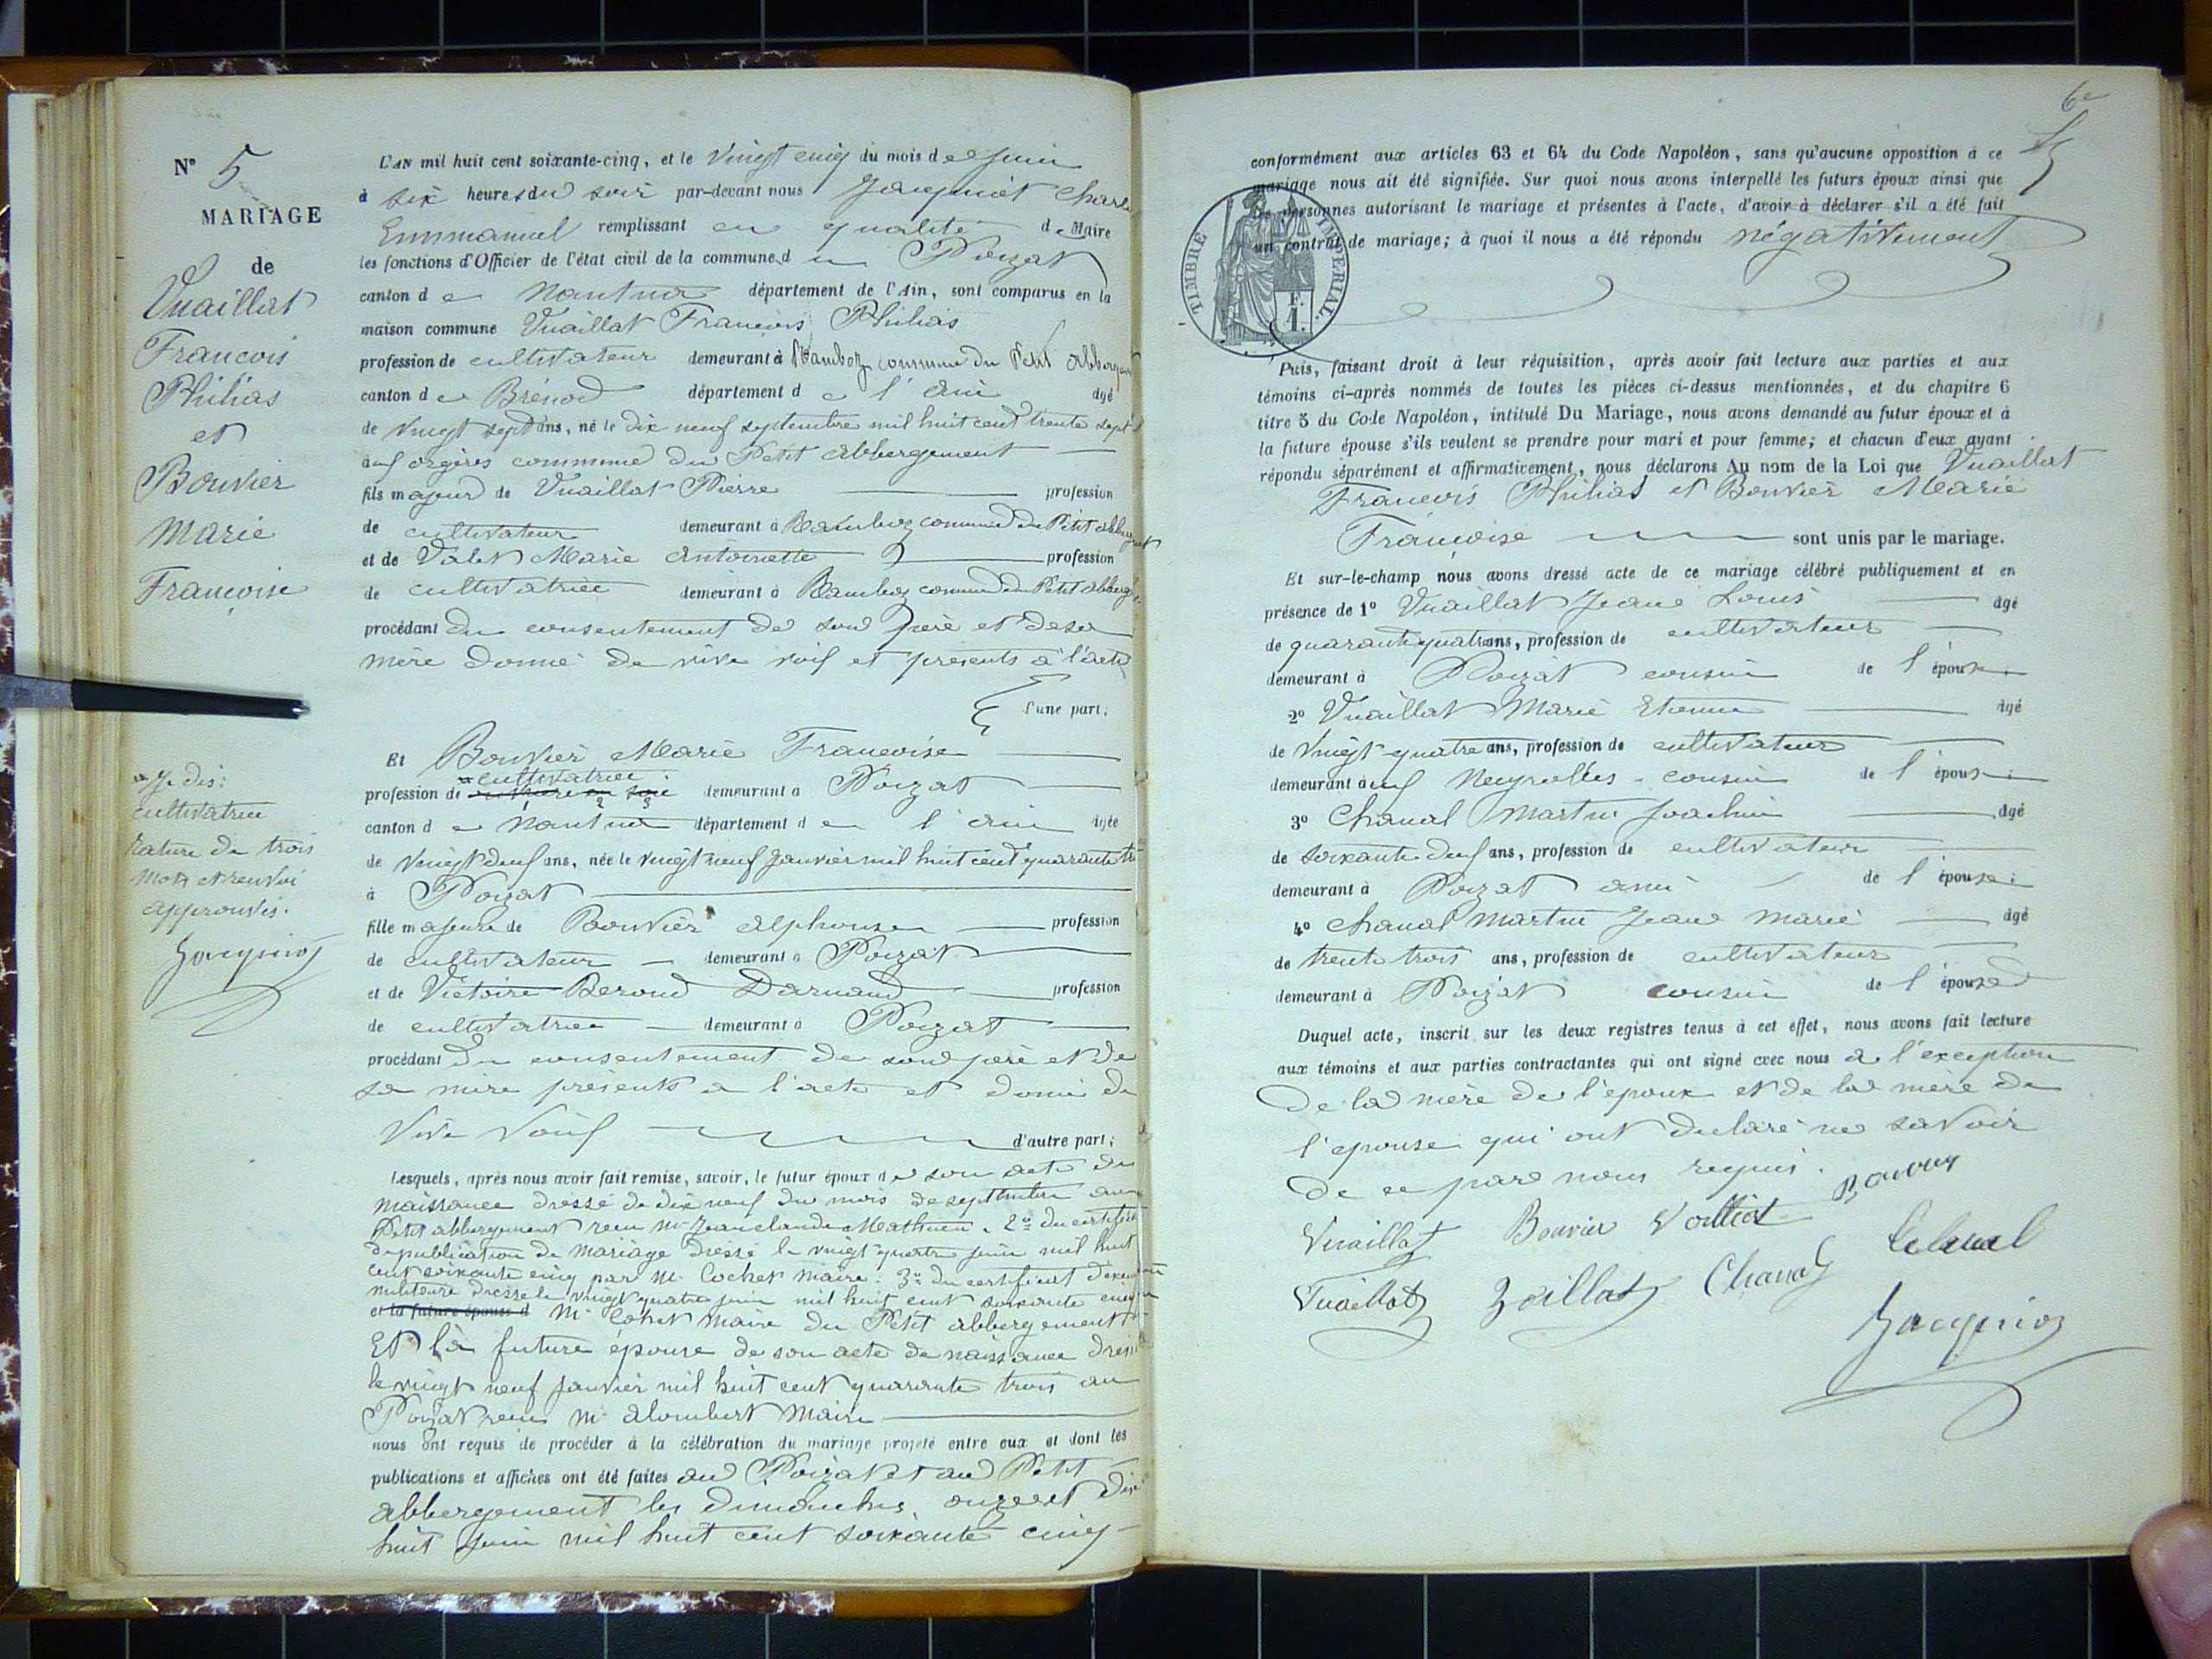 N° 5
MARIAGE
de
Vuaillat
François
Philias
et
Bouvier
Marie
Françoise
L'AN mil huit cent soixante-cinq, et le vingt cinq du mois de juin
à six heures du soir par-devant nous Jacquiot Charles
Emmanuel remplissant en qualité de Maire
les fonctions d'Officier de l'état civil de la commune du Poizat
canton de Nantua département de l'Ain, sont comparus en la
maison commune Vuaillat François Philias
profession de cultivateur demeurant à Ramboz commune du Petit Abbergement
canton de Brénod département de l'Ain âgé
de vingt sept ans, né le dix neuf septembre mil huit cent trente sept
aux orgères commune du Petit Abbergement
fils majeur de Vuaillat Pierre profession
de cultivateur demeurant à Ramboz commune du Petit abbergement
et de Valet Marie Antoinette profession
de cultivatrice demeurant à Ramboz commune du Petit abberg
procédant du consentement de son père et de sa
mère donné de vive voix et présents à l'acte
d'une part;
Et Bouvier Marie Françoise
cultivatrice
profession de ouvrière en soie demeurant à Poizat
1 2 3
canton de Nantua département de l'Ain âgée
de vingt deux ans, née le vingt neuf janvier mil huit cent quarante trois
à Poizat
fille majeure de Bouvier Alphonse profession
de cultivateur demeurant à Poizat
et de Victoire Beroud Darnaud profession
de cultivatrice demeurant à Poizat
procédant du consentement de son père et de
sa mère présents à l'acte et donné de
vive voix d'autre part;
je dis:
cultivatrice
rature de trois
mots et renvoi
approuvés.
Jacquiot
Lesquels, après nous avoir fait remise, savoir, le futur époux de son acte de
naissance dressé de dix neuf du mois de septembre au
Petit abbergement reçu Mr Jean claude Mathieu. 2° du certificat
de publication de mariage dressé le vingt quatre juin mil huit
cent soixante cinq par Mr Cochet maire: 3° du certificat d'exemption
militaire dressé le vingt quatre juin mil huit cent soixante cinq
et la future épouse d Mr Cochet maire du Petit abbergement
Et la future épouse de son acte de naissance dressé
le vingt neuf janvier mil huit cent quarante trois au
Poizat reçu Mr Alombert Maire
nous ont requis de procéder à la célébration du mariage projeté entre eux et dont les
publications et affiches ont été faites au Poizat et au Petit
abbergement les dimanches onze et dix
huit juin mil huit cent soixante cinq
conformément aux articles 63 et 64 du Code Napoléon, sans qu'aucune opposition à ce
mariage nous ait été signifiée. Sur quoi nous avons interpellé les futurs époux ainsi que
les personnes autorisant le mariage et présentes à l'acte, d'avoir à déclarer s'il a été fait
un contrat de mariage; à quoi il nous a été répondu négativement
TIMBRE IMPERIAL.
F.
1.
Puis, faisant droit à leur réquisition, après avoir fait lecture aux parties et aux
témoins ci-après nommés de toutes les pièces ci-dessus mentionnées, et du chapitre 6
titre 5 du Code Napoléon, intitulé Du Mariage, nous avons demandé au futur époux et à
la future épouse s'ils veulent se prendre pour mari et pour femme; et chacun d'eux ayant
répondu séparément et affirmativement, nous déclarons Au nom de la Loi que Vuaillat
François Philias et Bouvier Marie
Françoise sont unis par le mariage.
Et sur-le-champ nous avons dressé acte de ce mariage célébré publiquement et en
présence de 1° Vuaillat Jean Louis âgé
de quarante quatre ans, profession de cultivateur
demeurant à Poizat cousin de l'épouse
2° Vuaillat Marie Etienne âgé
de vingt quatre ans, profession de cultivateur
demeurant aux Neyrolles cousin de l'épouse
3° Chanal Martin Joachim âgé
de soixante deux ans, profession de cultivateur
demeurant à Poizat ami de l'épouse
4° Chanal Martin Jean Marie âgé
de trente trois ans, profession de cultivateur
demeurant à Poizat cousin de l'épouse
Duquel acte, inscrit sur les deux registres tenus à cet effet, nous avons fait lecture
aux témoins et aux parties contractantes qui ont signé avec nous à l'exception
de la mère de l'époux et de la mère de
l'épouse qui ont déclaré ne savoir
de ce par nous requis.
Vuaillat Bouvier Bouvier
Vuaillat Chanal
Jacquiot